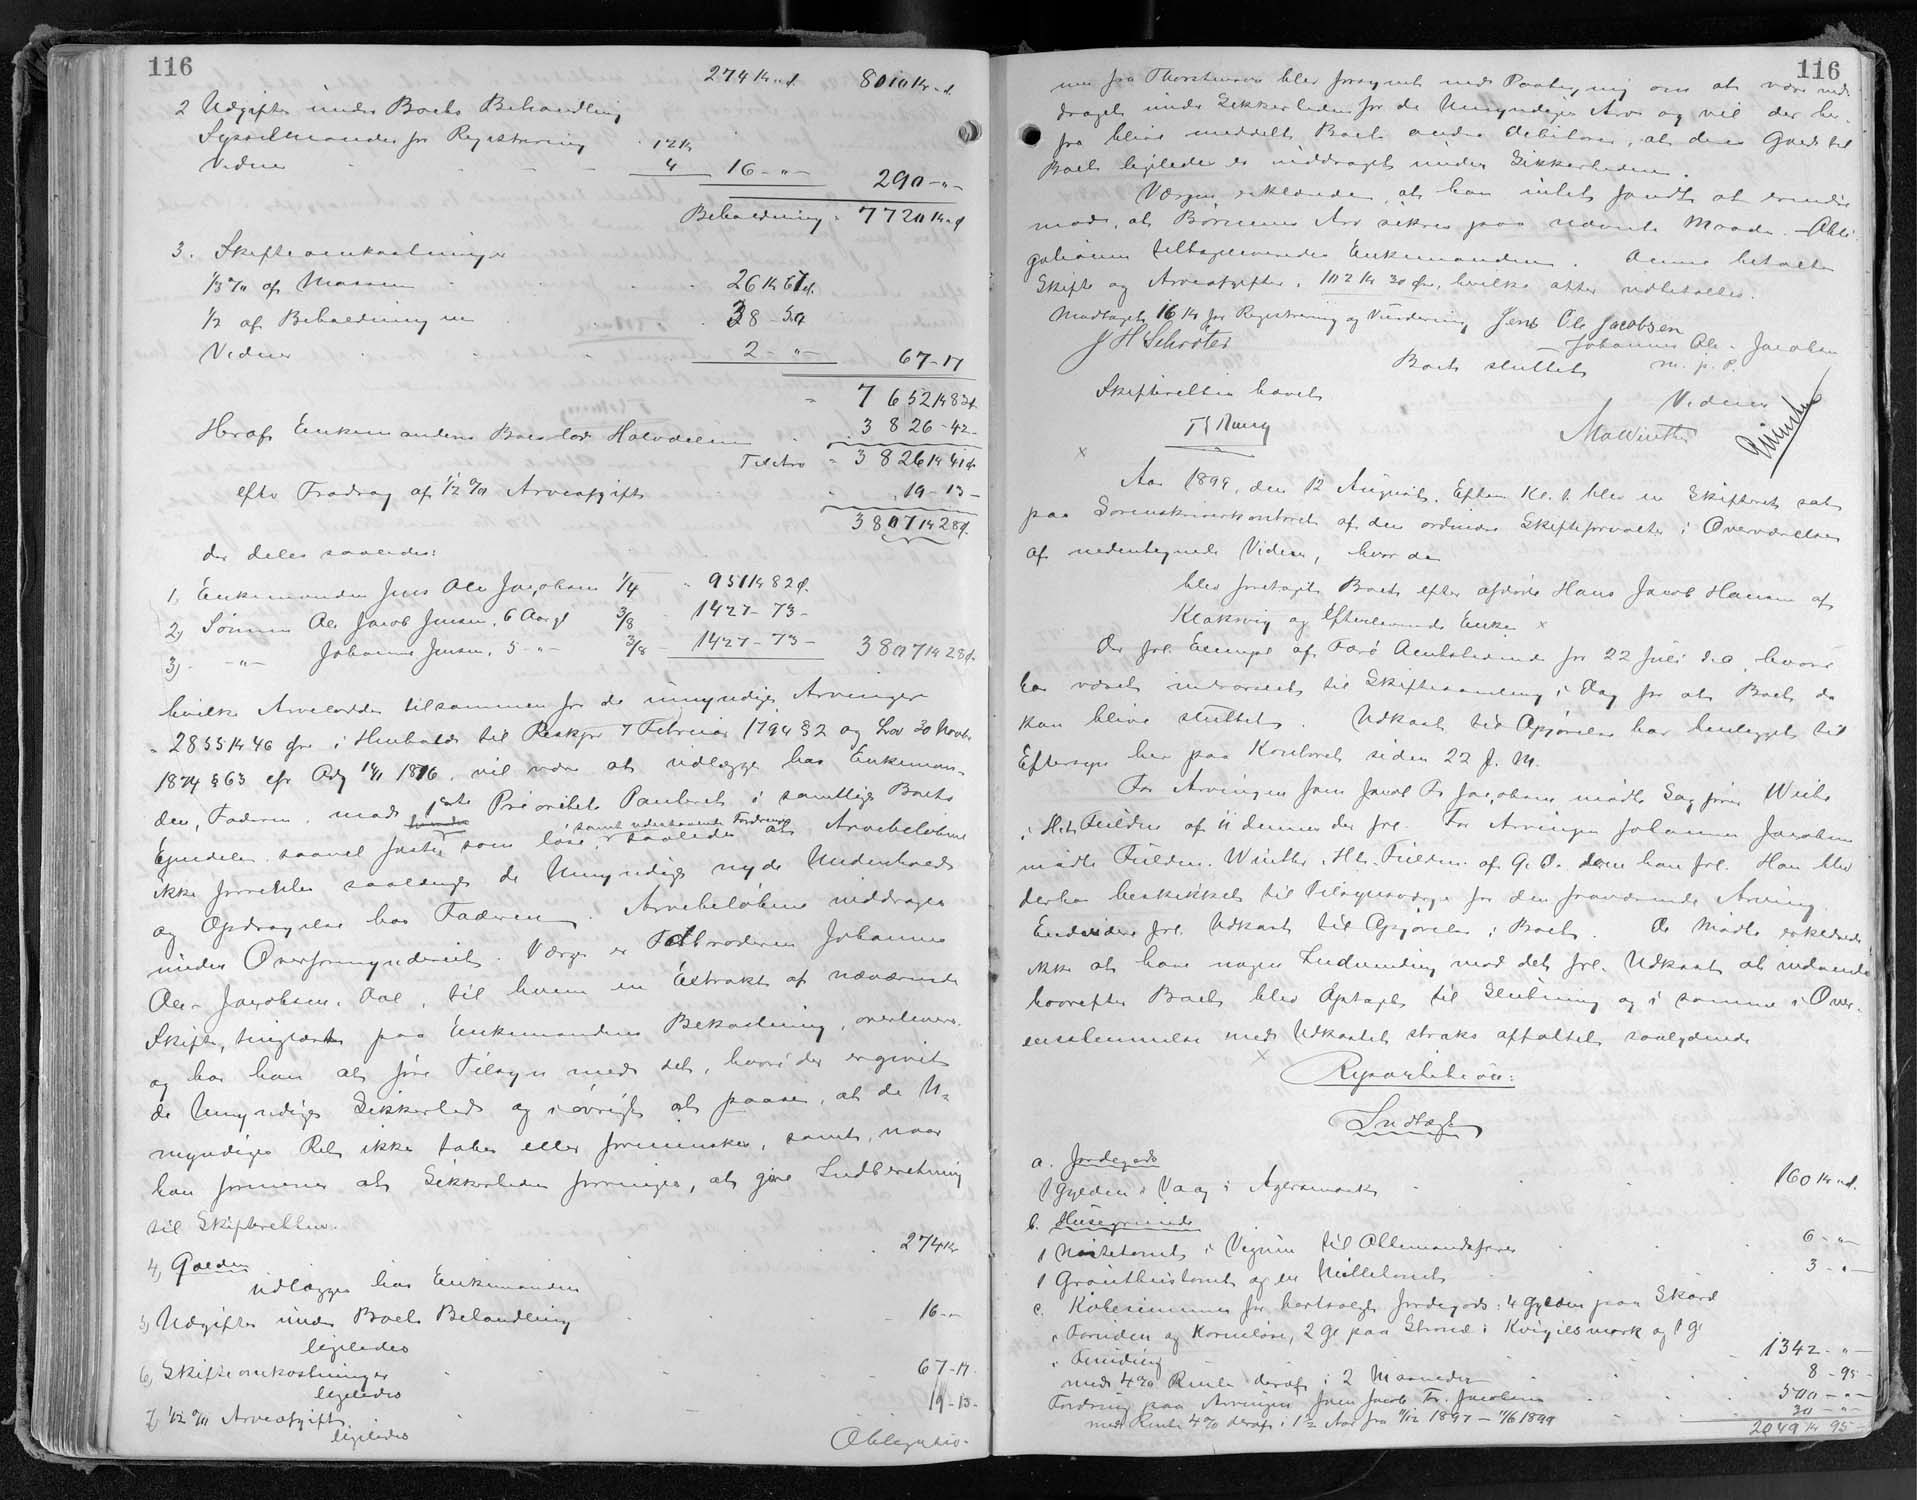 116
274 Kr. " Ø. 8010 Kr. " Ø.
2 Udgifter under Boets Behandling
Sysselmanden for Registrering 12 Kr
Vidner 4 16 - " - 290 - " -
Beholdning 7720 Kr. " Ø
3. Skifteomkostninger
1/3 % af Massen 26 Kr 67 Ø.
1/2 af Beholdningen 38 - 50
Vidner 2 - " - 67 - 17
7652 Kr 83 Ø.
Heraf Enkemandens Boeslod Halvdelen 3826 - 42 -
Til Arv 3826 Kr 41 Ø.
efter Fradrag af 1/2 % Arveafgift 19 - 13 -
3807 Kr 28 Ø.
der deles saaledes:
1, Enkemanden Jens Ole Jacobsen 1/4 951 Kr 82 Ø.
2, Sønnen Ole Jacob Jensen, 6 Aar gl 3/8 1427 - 73 -
3, - " - Johannes Jensen, 5 - " - 3/8 - 1427 - 73 - 3807 Kr 28 Ø.
hvilke Arvelodder tilsammen for de umyndige Arvinger
2855 Kr 46 Øre i Henhold til Reskpt 7 Februar 1794 § 2 og Lov 30 Novbr
1874 § 63 cfr vil være at udlægge hos Enkeman-
den, Faderen, mod 1ste Prioritets Panteret i samtlige Boets
Ejendele saavel faste som løse, samt udestaaende Fordringer saaledes at Arvebeløbene
ikke forrentes saalænge de Umyndige nyde Underhold
og Opdragelse hos Faderen. Arvebeløbene inddrages
under Overformynderiet. Værge er Farbroderen Johannes
Ole Jacobsen, til hvem en Extrakt af nærværende
Skifte, tinglæst paa Enkemandens Bekostning, overleveres
og har han at føre Tilsyn med det, hvori der er givet
de Umyndige Sikkerhed og iøvrigt at paase, at de U-
myndiges Ret ikke tabes eller forminskes, samt, naar
han formener at Sikkerheden forringes, at gjøre Indberetning
til Skifteretten.
4, Gælden 274 Kr
udlægges hos Enkemanden
5, Udgifter under Boets Behandling 16 - " -
ligeledes
6, Skifteomkostninger 67 - 17
ligeledes
7, 1/2 % Arveafgift 19 - 13 -
ligeledes
Obligatio-
116
nen fra Thorshavn blev forsynet med Paategning om at være ind-
draget under Sikkerheden for de Umyndiges Arv og vil der her-
fra blive meddelt Boets andre Debitorer, at deres Gæld til
Boet ligeledes er inddraget under Sikkerheden.
Værgen erklærede, at han intet fandt at erindre
mod, at Børnenes Arv sikres paa nævnte Maade. Obli-
gationen tilbageleveredes Enkemanden. Denne betalte
Skifte og Arveafgifter, 102 Kr 30 Øre, hvilke atter udbetaltes.
Modtaget 16 Kr for Registrering og Vurdering Jens Ole Jacobsen
J H Schrøter Johannes Ole Jacobsen
Boet sluttet m. f. P.
Skifteretten hævet
Vidner
MaWinther
Aar 1899, den 12 August, Efterm Kl. 1 blev en Skifteret sat
paa Sorenskriverkontoret af den ordinære Skifteforvalter i Overværelse
af nedentegnede Vidner, hvor da
blev foretaget Boet efter afdøde Hans Jacob Hansen af
Klaksvig og Efterlevende Enke
Der frl. Exempl. af Færø Amtstidende for 22 Juli d. A. hvori
har været indvarslet til Skiftesamling i Dag for at Boet da
kan blive sluttet. Udkast til Opgjørelse har henligget til
Eftersyn her paa Kontoret siden 22 f. M.
For Arvingen Jacob Fr. Jacobsen mødte Sagfører Winther
i Hht Fuldm. af 11 dennes der frl. For Arvingen Johannes Jacobsen
mødte Fuldm. Winther i Ht. Fuldm. af G. D. dem han frl. Han blev
derhos beskikket til Tilsynsværge for den fraværende Arving.
Endvidere frl. Udkast til Opgjørelse i Boet. De Mødte erklærede
ikke at have nogen Indvending mod det frl. Udkast at indvende
hvorefter Boet blev optaget til Slutning og i samme i Over-
ensstemmelse med Udkastet straks affattet saalydende
Repartition:
Indtægt
a. Jordegods
1 Gylden i Vaag i Agersmark 160 Kr. " Ø.
b. Husegrunde
1 Nøstetomt i Vigum til Allemandsfare 6 - " -
1 Grouthustomt og en Mølletomt 3 - " -
c. Købesummen for bortsolgt Jordegods: 4 Gylden paa Skard
i Foruden og Korneløse, 2 Gl paa Strond i Kvigilsmark og 1 Gl
i Funding 1342 - " -
med 4 % Rente deraf i 2 Maaneder 8 - 95 -
Fordring paa Arvingen Jacob Fr. Jacobsen 500 - " -
med Rente 4 % deraf i 1 1/2 Aar fra 11/12 1897 - 11/6 1899 30 - " -
2049 Kr 95